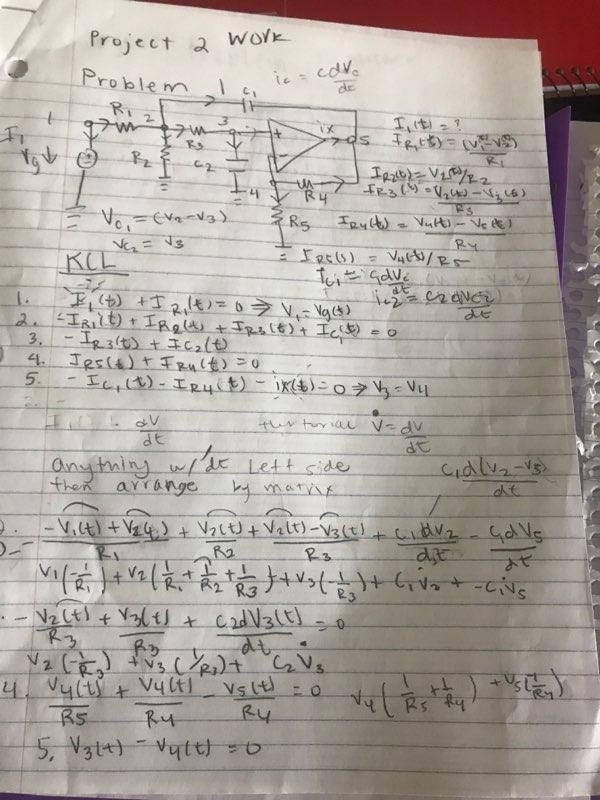 Project 2 Work
Problem 1
ic = cdVc/dt
C1
1 R1 2 R3 3 + ix 5
I1
Vg
R2
C2
-
4 R4
R5
I1(t) = ?
IR1(t) = (V1(t)-V2(t))/R1
IR2(t) = V2(t)/R2
IR3(t) = V2(t) - V3(t)/R3
IR4(t) = V4(t) - V5(t)/R4
IR5(t) = V4(t)/R5
Vc1 = (V2-V3)
Vc2 = V3
Ic1 = C1dVc/dt
ic2 = C2dVc2/dt
KCL
1. I1(t) + IR1(t) = 0 ⇒ V1 = Vg(t)
2. -IR1(t) + IR2(t) + IR3(t) + IC1(t) = 0
3. -IR3(t) + IC2(t)
4. IR5(t) + IR4(t) = 0
5. -IC1(t) - IR4(t) - ix(t) = 0 ⇒ V3 = V4
dV/dt
tutorial V̇ = dV/dt
anything w/ dt left side
then arrange by matrix
C1d(V2-V5)/dt
-V1(t) + V2(t)/R1 + V2(t)/R2 + V2(t) - V3(t)/R3 + C1dV2/dt - C1dV5/dt
V1(-1/R1) + V2(1/R1 + 1/R2 + 1/R3) + V3(-1/R3) + C1V̇2 + -C1V̇5
- V2(t)/R3 + V3(t)/R3 + C2dV3(t)/dt = 0
V2(-1/R3) + V3(1/R3) + C2V̇3
4. V4(t)/R5 + V4(t)/R4 - V5(t)/R4 = 0
V4(1/R5 + 1/R4) + V5(-1/R4)
5. V3(t) - V4(t) = 0